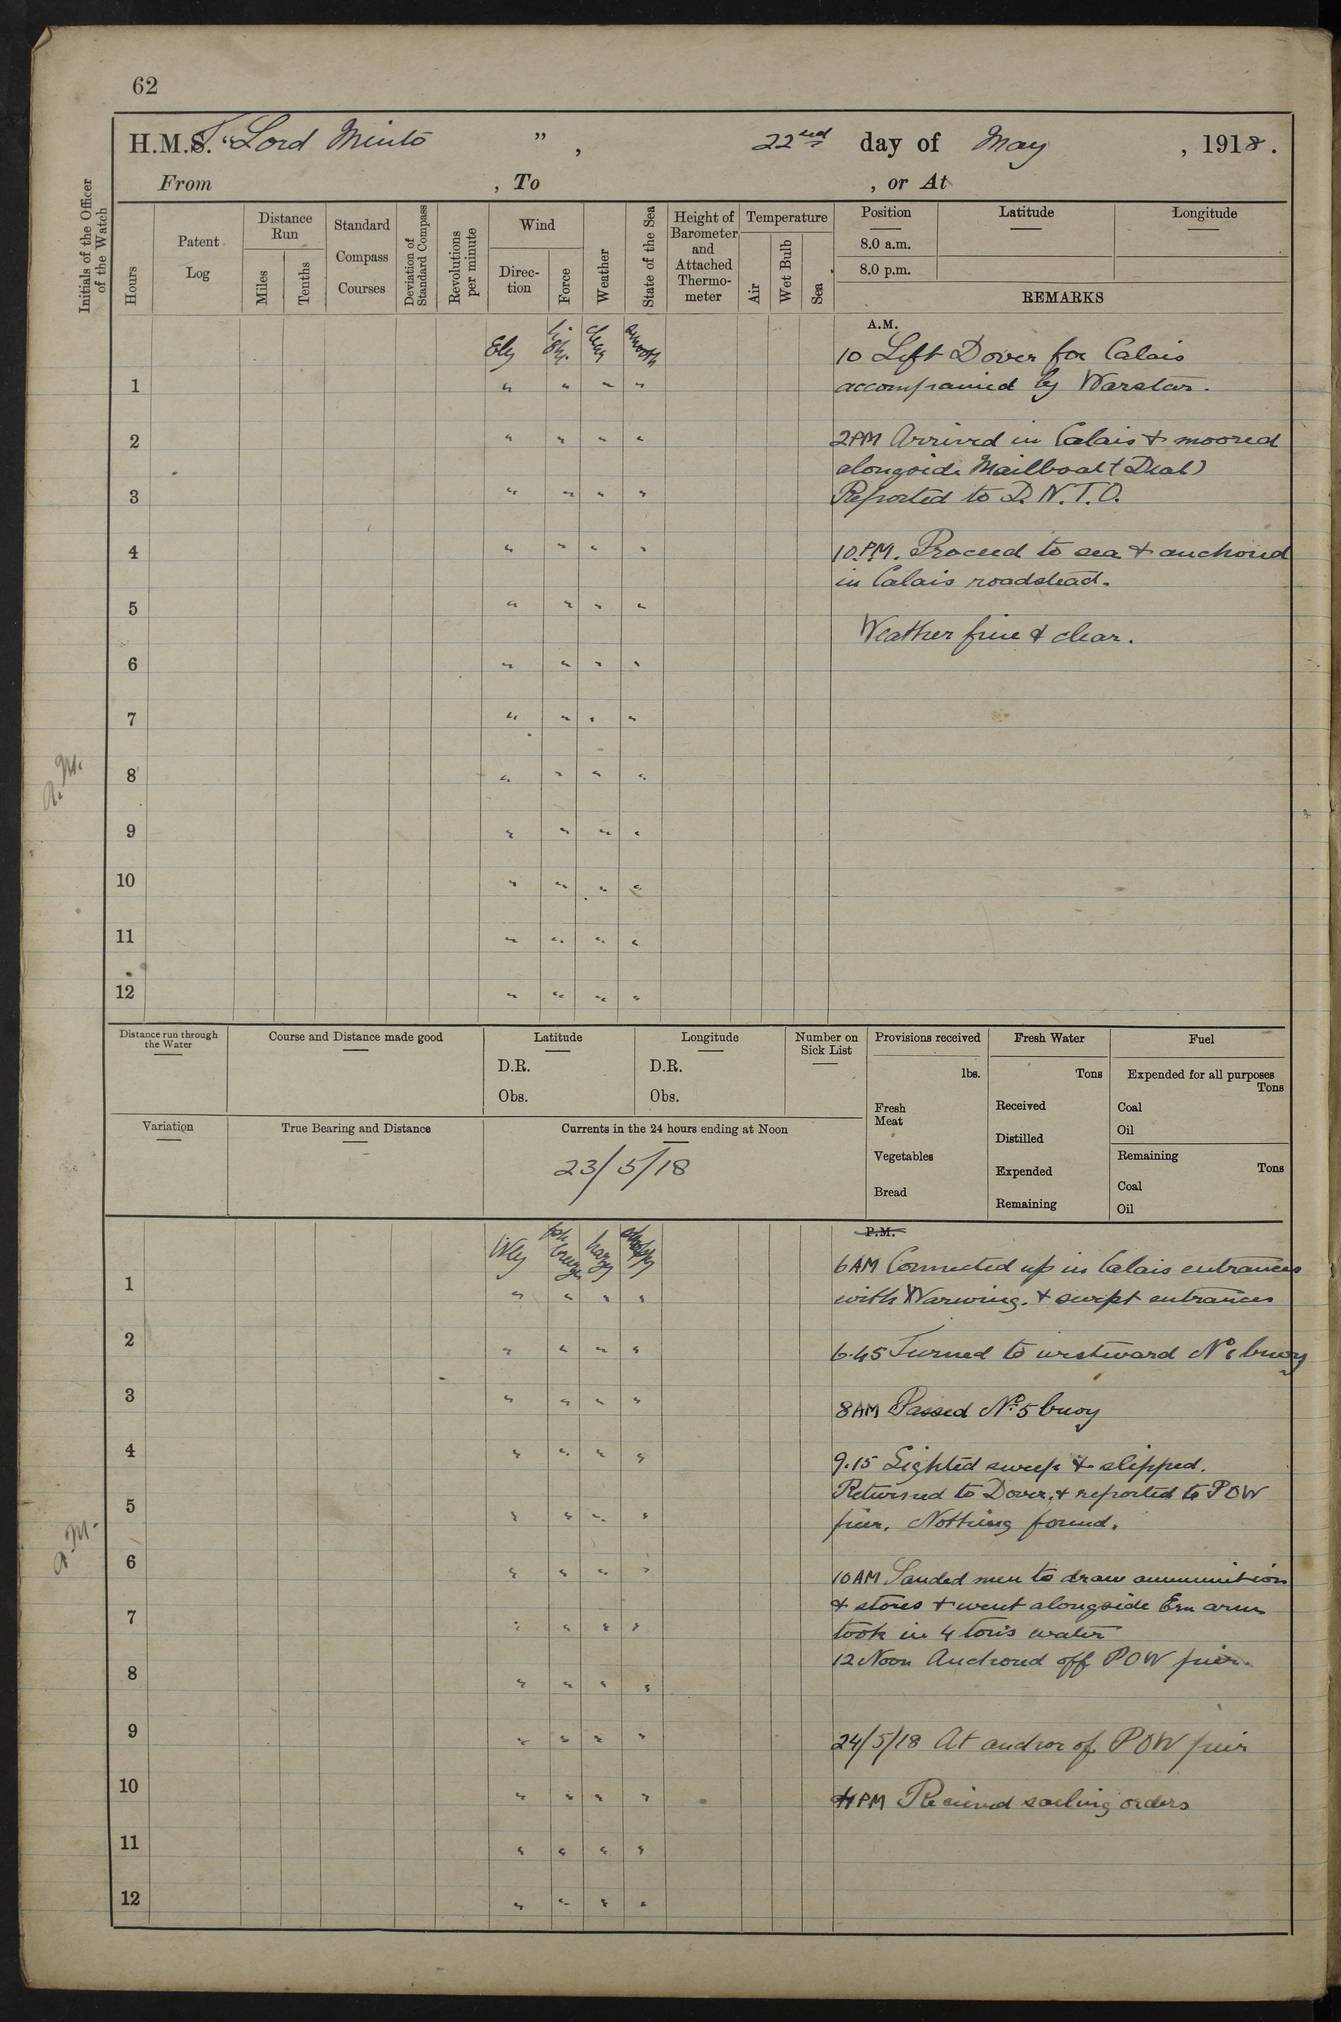 62
H.M.S.T. "Lord Minto", 22nd day of May, 1918.
From , To , or At
Initials of the Officer of the Watch
Hours
Patent Log
Distance Run
Miles
Tenths
Standard Compass Courses
Deviation of Standard Compass
Revolutions per minute
Wind
Direction
Force
Weather
State of the Sea
Height of Barometer and Attached Thermometer
Temperature
Air
Wet Bulb
Sea
Position
Latitude
Longitude
8.0 a.m.
8.0 p.m.
REMARKS
A.M.
Ely light clear smooth
10 Left Dover for Calais
1 " " " " accompanied by Warstar.
2 " " " " 2PM Arrived in Calais & moored
alongside Mailboat (Deal)
3 " " " " Reported to D.N.T.O.
4 " " " " 10.PM. Proceed to sea & anchored
in Calais roadstead.
5 " " " "
Weather fine & clear.
6 " " " "
7 " " " "
A.M.
8 " " " "
9 " " " "
10 " " " "
11 " " " "
12 " " " "
Distance run through the Water
Course and Distance made good
Latitude
D.R.
Obs.
Longitude
D.R.
Obs.
Number on Sick List
Provisions received
lbs.
Fresh Meat
Vegetables
Bread
Fresh Water
Tons
Received
Distilled
Expended
Remaining
Fuel
Expended for all purposes
Tons
Coal
Oil
Remaining
Tons
Coal
Oil
Variation
True Bearing and Distance
Currents in the 24 hours ending at Noon
23/5/18
P.M.
Wly fresh breeze hazy choppy
6AM Connected up in Calais entrances
1 " " " " with Warwing. & swept entrances
2 " " " " 6.45 Turned to westward No buoy
3 " " " " 8AM Passed No. 5 buoy
4 " " " " 9.15 Sighted sweep & slipped.
Returned to Dover, & reported to POW
5 " " " " pier. Nothing found.
A.M.
6 " " " " 10AM Landed men to draw ammunition
& stores & went alongside Em arm
7 " " " " took in 4 tons water
12 Noon Anchored off POW pier.
8 " " " "
9 " " " " 24/5/18 At anchor of POW pier
10 " " " " 4PM Recieved sailing orders
11 " " " "
12 " " " "